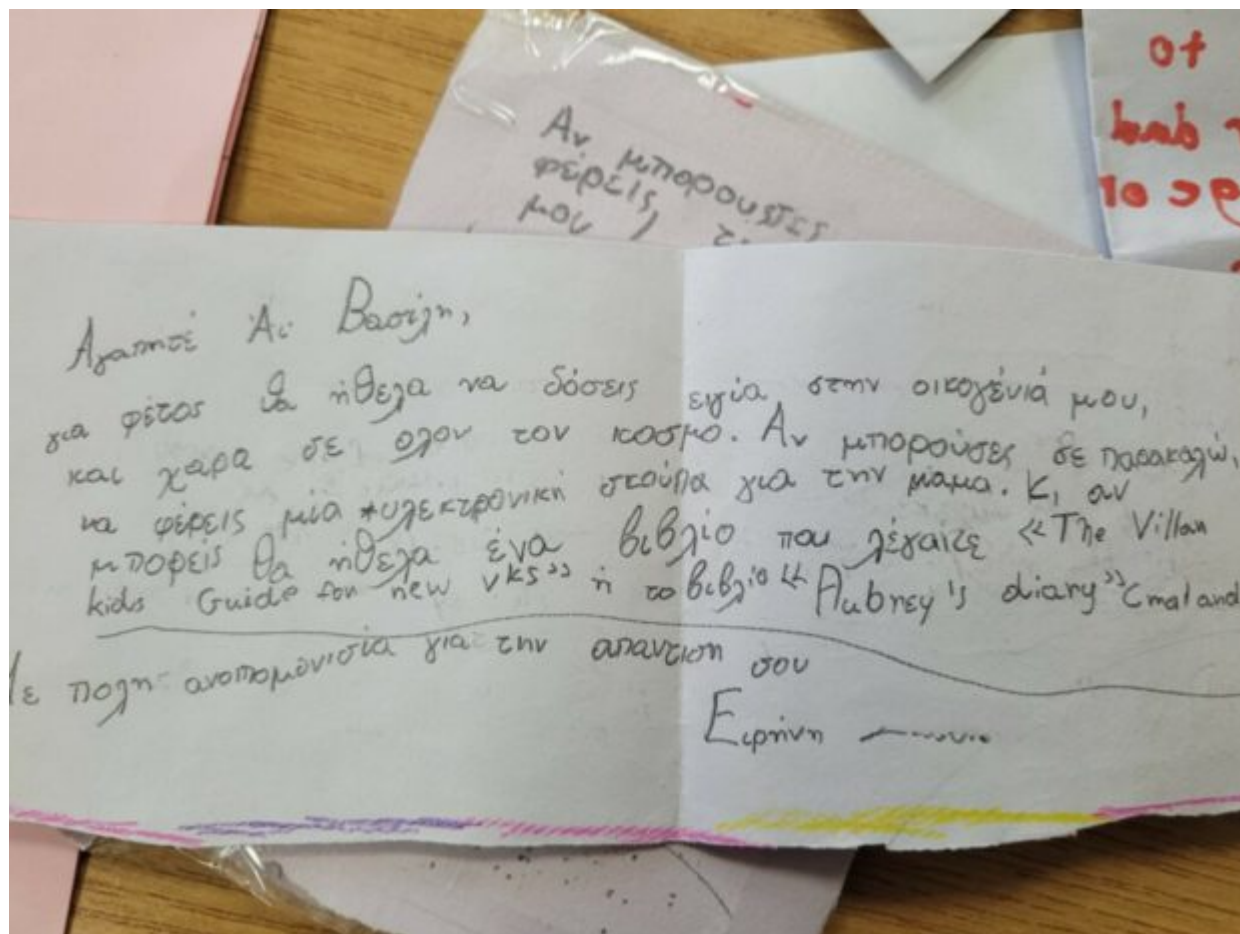 Αν μπορουστες
φέρεις
μου
to
dad
Αγαπητέ Άι Βασίλη,
για φέτος θα ήθελα να δόσεις υγία στην οικογένιά μου,
και χαρα σε ολον τον κοσμο. Αν μπορούσες σε παρακαλώ,
να φέρεις μία ηλεκτρονική σκούπα για την μαμα. Κ, αν
μπορείς θα ήθελα ένα βιβλίο που λέγαιτε «The Villan
kids Guide for new vks» ή το βιβλίο «Aubrey's diary» Cmaland
Με πολη ανοπομονισία για την απαντιση σου
Ειρήνη